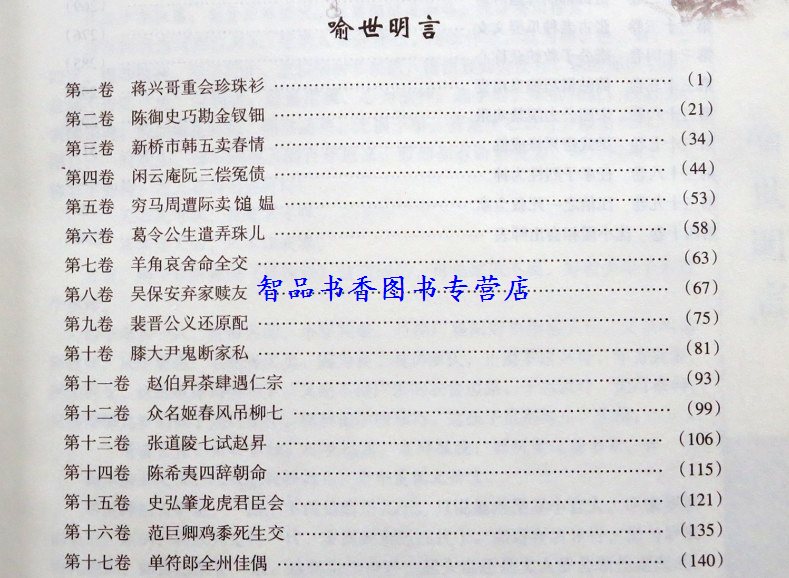 喻世明言
第一卷 蒋兴哥重会珍珠衫 (1)
第二卷 陈御史巧勘金钗钿 (21)
第三卷 新桥市韩五卖春情 (34)
第四卷 闲云庵阮三偿冤债 (44)
第五卷 穷马周遭际卖䭔媪 (53)
第六卷 葛令公生遣弄珠儿 (58)
第七卷 羊角哀舍命全交 (63)
第八卷 吴保安弃家赎友 (67)
智品书香图书专营店
第九卷 裴晋公义还原配 (75)
第十卷 滕大尹鬼断家私 (81)
第十一卷 赵伯昇茶肆遇仁宗 (93)
第十二卷 众名姬春风吊柳七 (99)
第十三卷 张道陵七试赵昇 (106)
第十四卷 陈希夷四辞朝命 (115)
第十五卷 史弘肇龙虎君臣会 (121)
第十六卷 范巨卿鸡黍死生交 (135)
第十七卷 单符郎全州佳偶 (140)